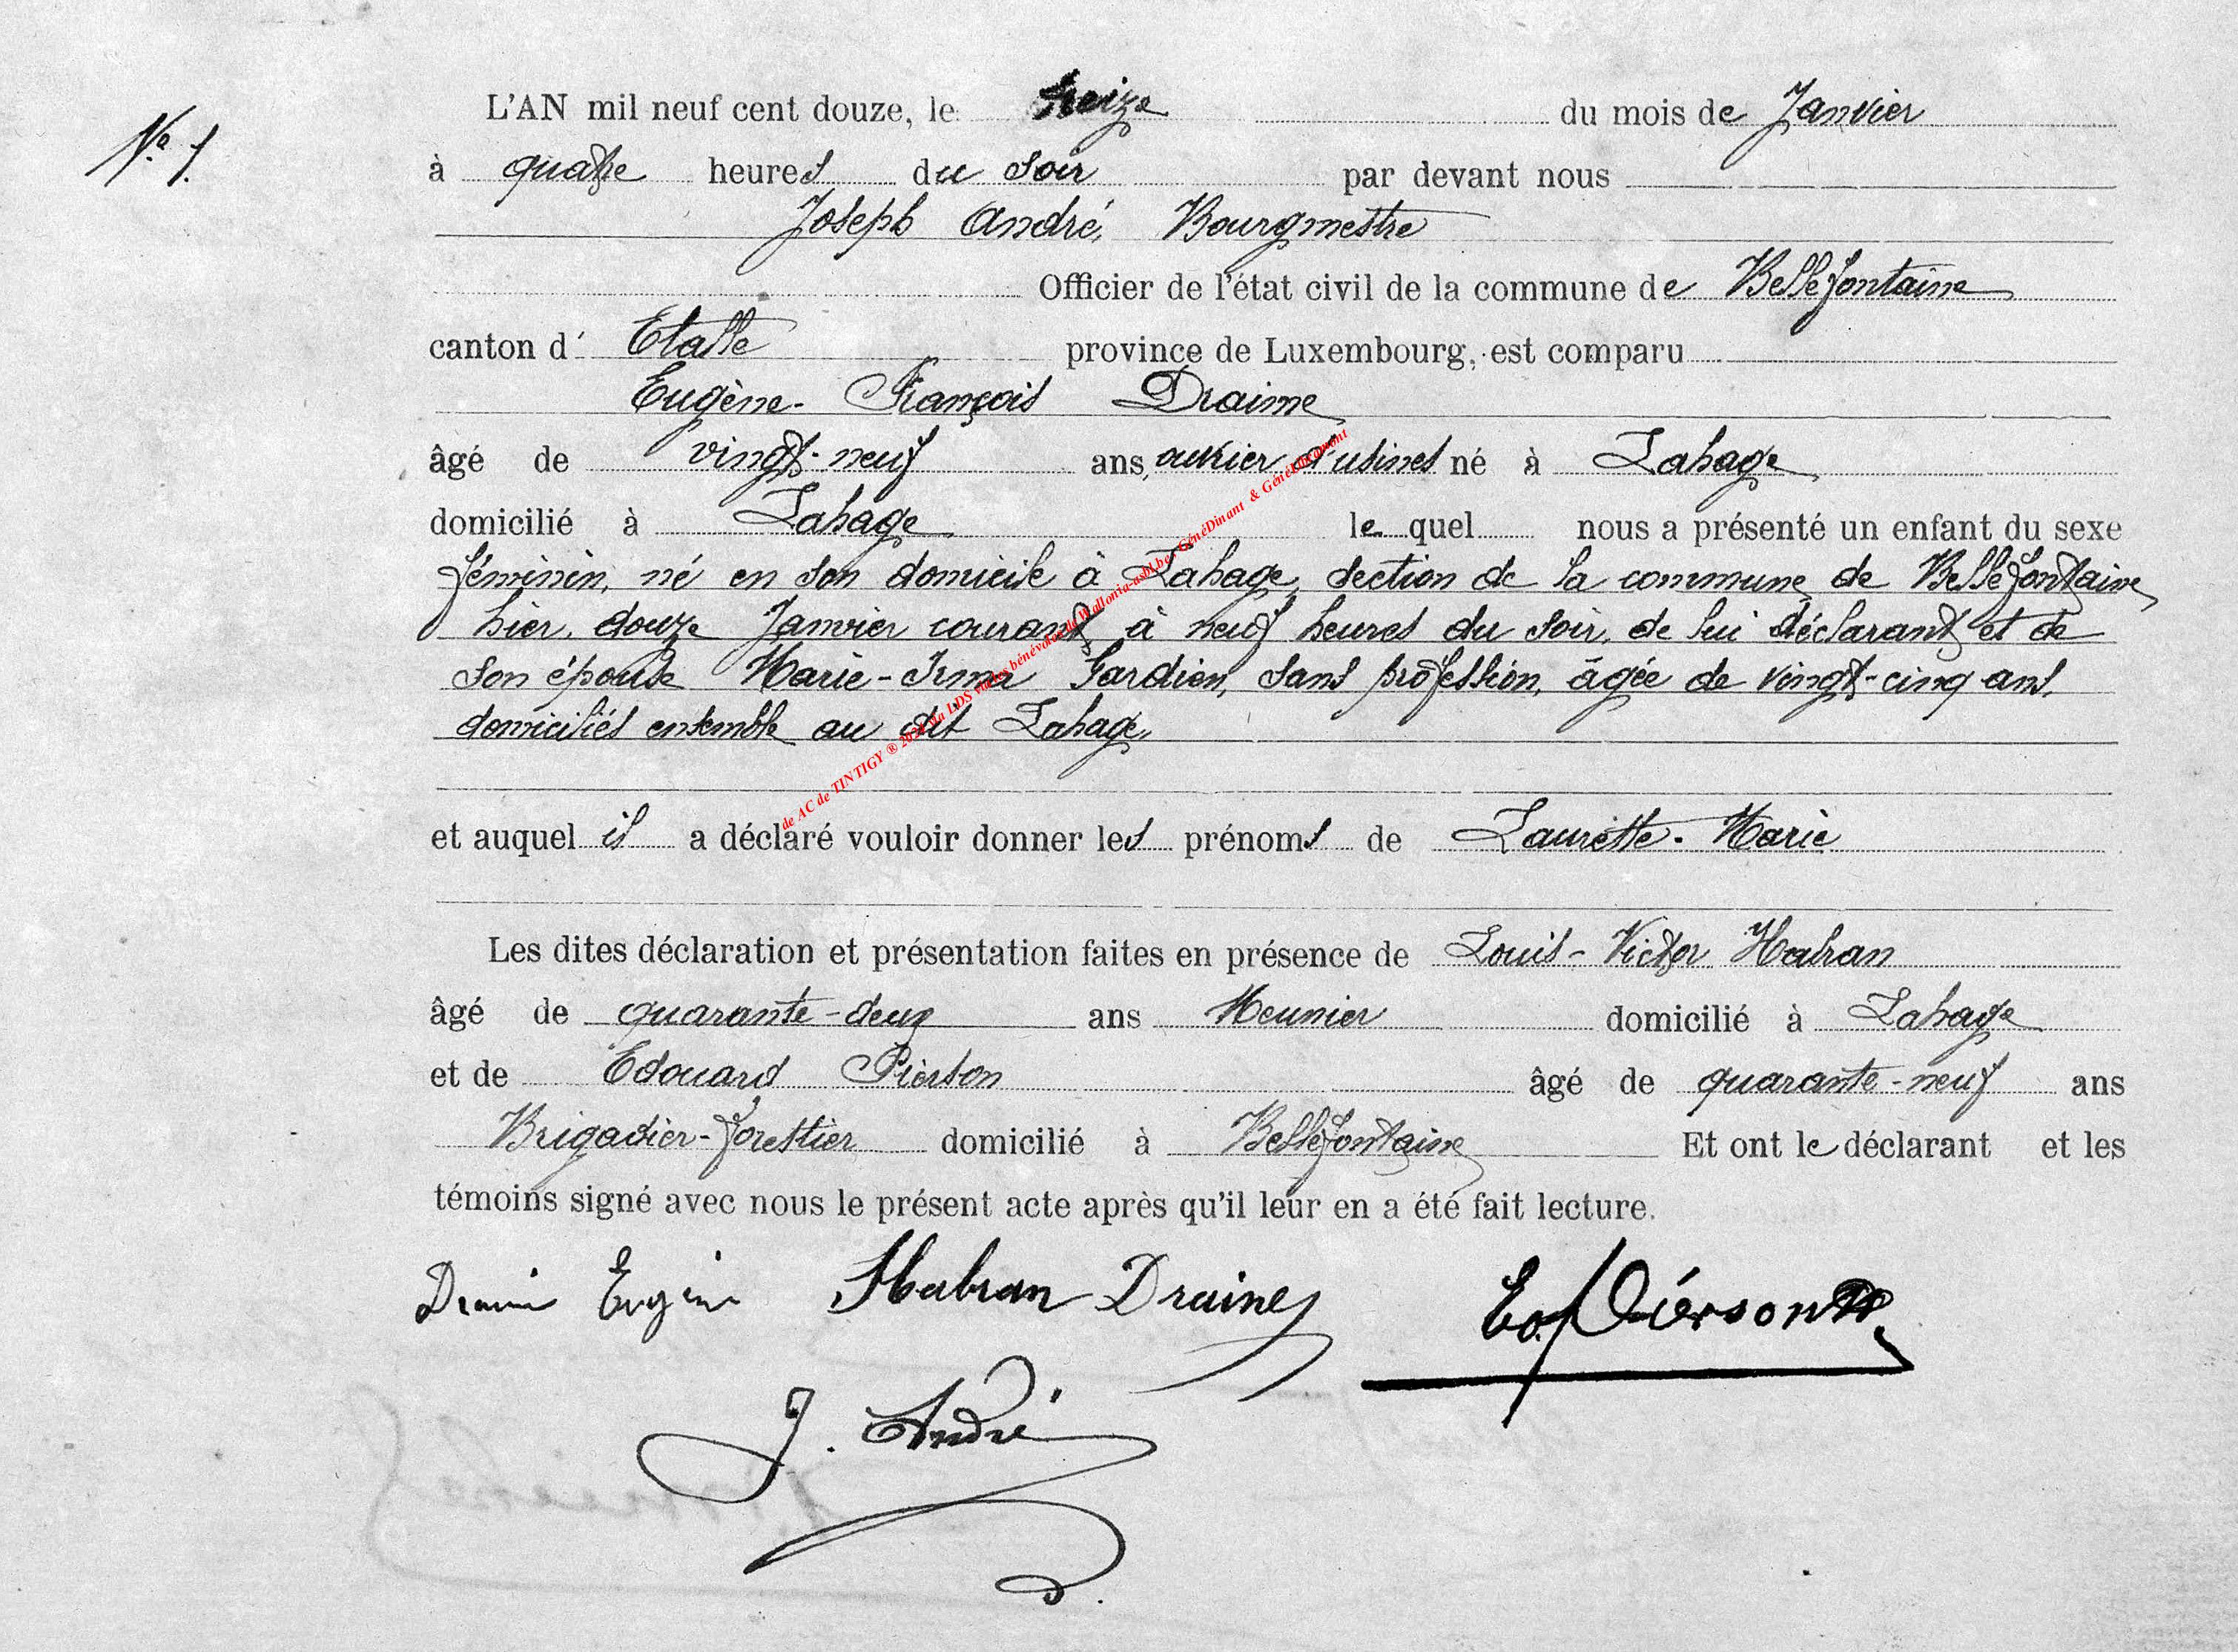 N° 1.
L'AN mil neuf cent douze, le treize du mois de Janvier
à quatre heures du soir par devant nous
Joseph André, Bourgmestre
Officier de l'état civil de la commune de Bellefontaine
canton d' Etalle province de Luxembourg, est comparu
Eugène-François Draime
âgé de vingt-neuf ans, ouvrier d'usines né à Lahage
domicilié à Lahage lequel nous a présenté un enfant du sexe
féminin, né en son domicile à Lahage, section de la commune de Bellefontaine
hier, douze Janvier courant, à neuf heures du soir, de lui déclarant et de
son épouse Marie-Irma Gardien, sans profession, âgée de vingt-cinq ans,
domiciliés ensemble au dit Lahage,
de AC de TINTIGY ® 2024 via LDS via les bénévoles de Wallonia-asbl.be, GénéDinant & GénéLibramont
et auquel il a déclaré vouloir donner les prénoms de Laurette-Marie
Les dites déclaration et présentation faites en présence de Louis-Victor Habran
âgé de quarante-deux ans Meunier domicilié à Lahage
et de Edouard Pierson âgé de quarante-neuf ans
Brigadier-forestier domicilié à Bellefontaine Et ont le déclarant et les
témoins signé avec nous le présent acte après qu'il leur en a été fait lecture.
Eugène Habran Draine Ed. Pierson
J. André